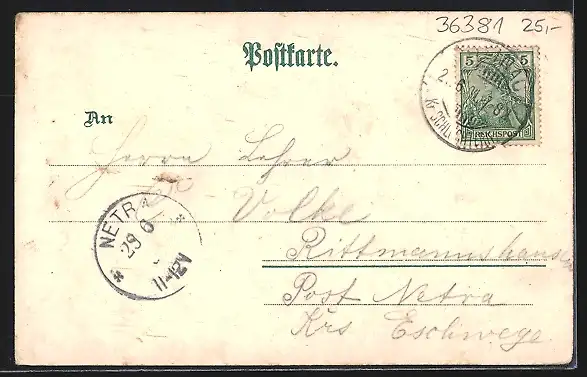 36381 25,-
Postkarte.
5 5
REICHSPOST
An
Herrn Lehrer
Volke
Rittmannshausen
Post Netra
Krs Eschwege
NETRA
29 6
11-12V